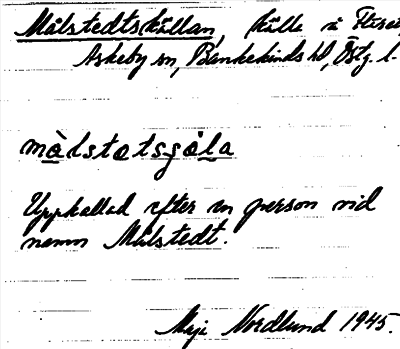 Målstedtskällan, källa i
Askeby sn, Bankekinds hd, Östg. l.
målstotsgåla
Uppkallad efter en person vid
namn Målstedt.
Maji Nordlund 1945.